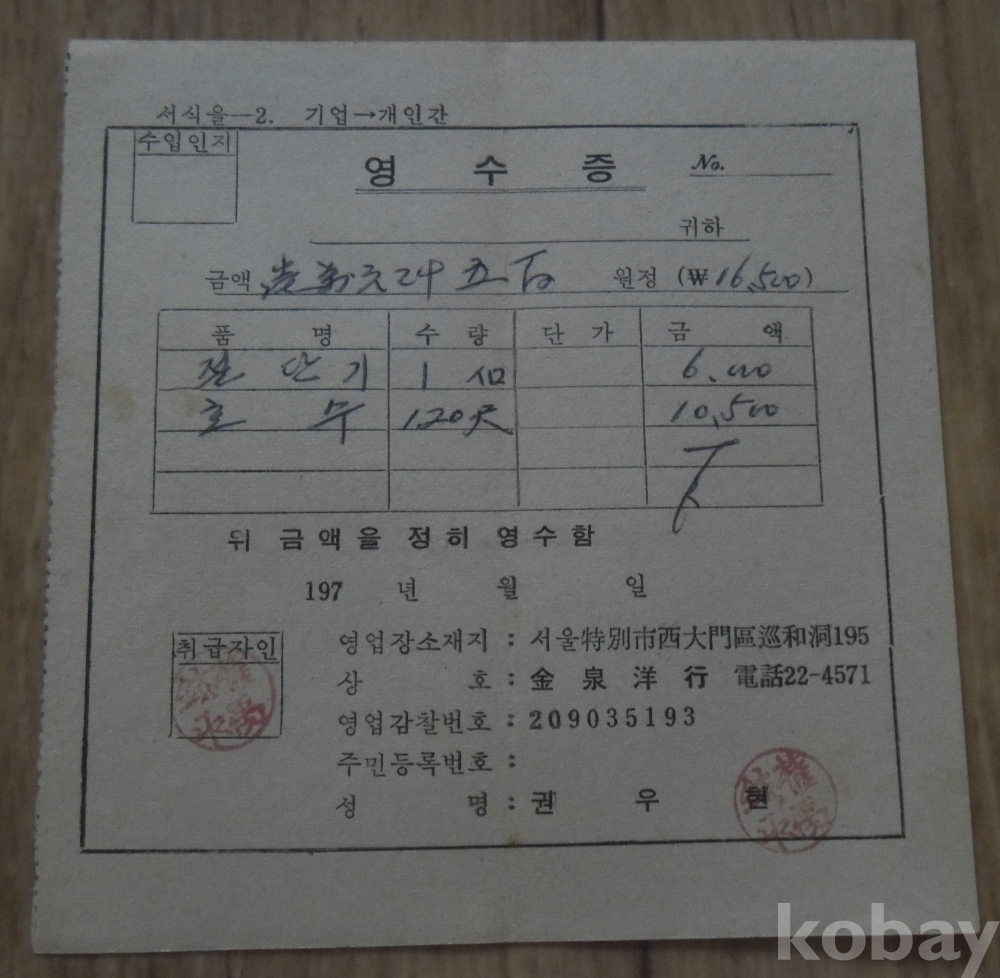 서식을—2. 기업→개인간
수입인지
영 수 증 No.
귀하
금액 壹萬六千五百 원정 (₩16,500)
품 명 수 량 단 가 금 액
절 단 기 1 6.000
호 수 120尺 10,500
위 금액을 정히 영수함
197 년 월 일
취급자인
영업장소재지 : 서울特別市西大門區巡和洞195
상 호 : 金泉洋行 電話22-4571
영업감찰번호 : 209035193
주민등록번호 :
성 명 : 권 우 현
kobay